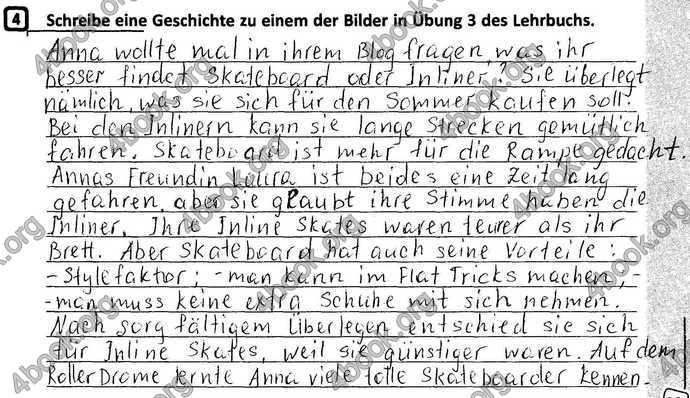 4 Schreibe eine Geschichte zu einem der Bilder in Übung 3 des Lehrbuchs.
Anna wollte mal in ihrem Blog fragen, was ihr
besser findet Skateboard oder Inliner? Sie überlegt
nämlich, was sie sich für den Sommer kaufen soll.
Bei den Inlinern kann sie lange Strecken gemütlich
fahren. Skateboard ist mehr für die Rampe gedacht.
Annas Freundin Laura ist beides eine Zeit lang
gefahren, aber sie glaubt ihre Stimme haben die
Inliner. Ihre Inline Skates waren teurer als ihr
Brett. Aber Skateboard hat auch seine Vorteile:
-Stylefaktor; -man kann im Flat Tricks machen, -
-man muss keine extra Schuhe mit sich nehmen.
Nach sorg fältigem Überlegen entschied sie sich
für Inline Skates, weil sie günstiger waren. Auf dem
RollerDrome lernte Anna viele tolle Skateboarder kennen.
4book.org